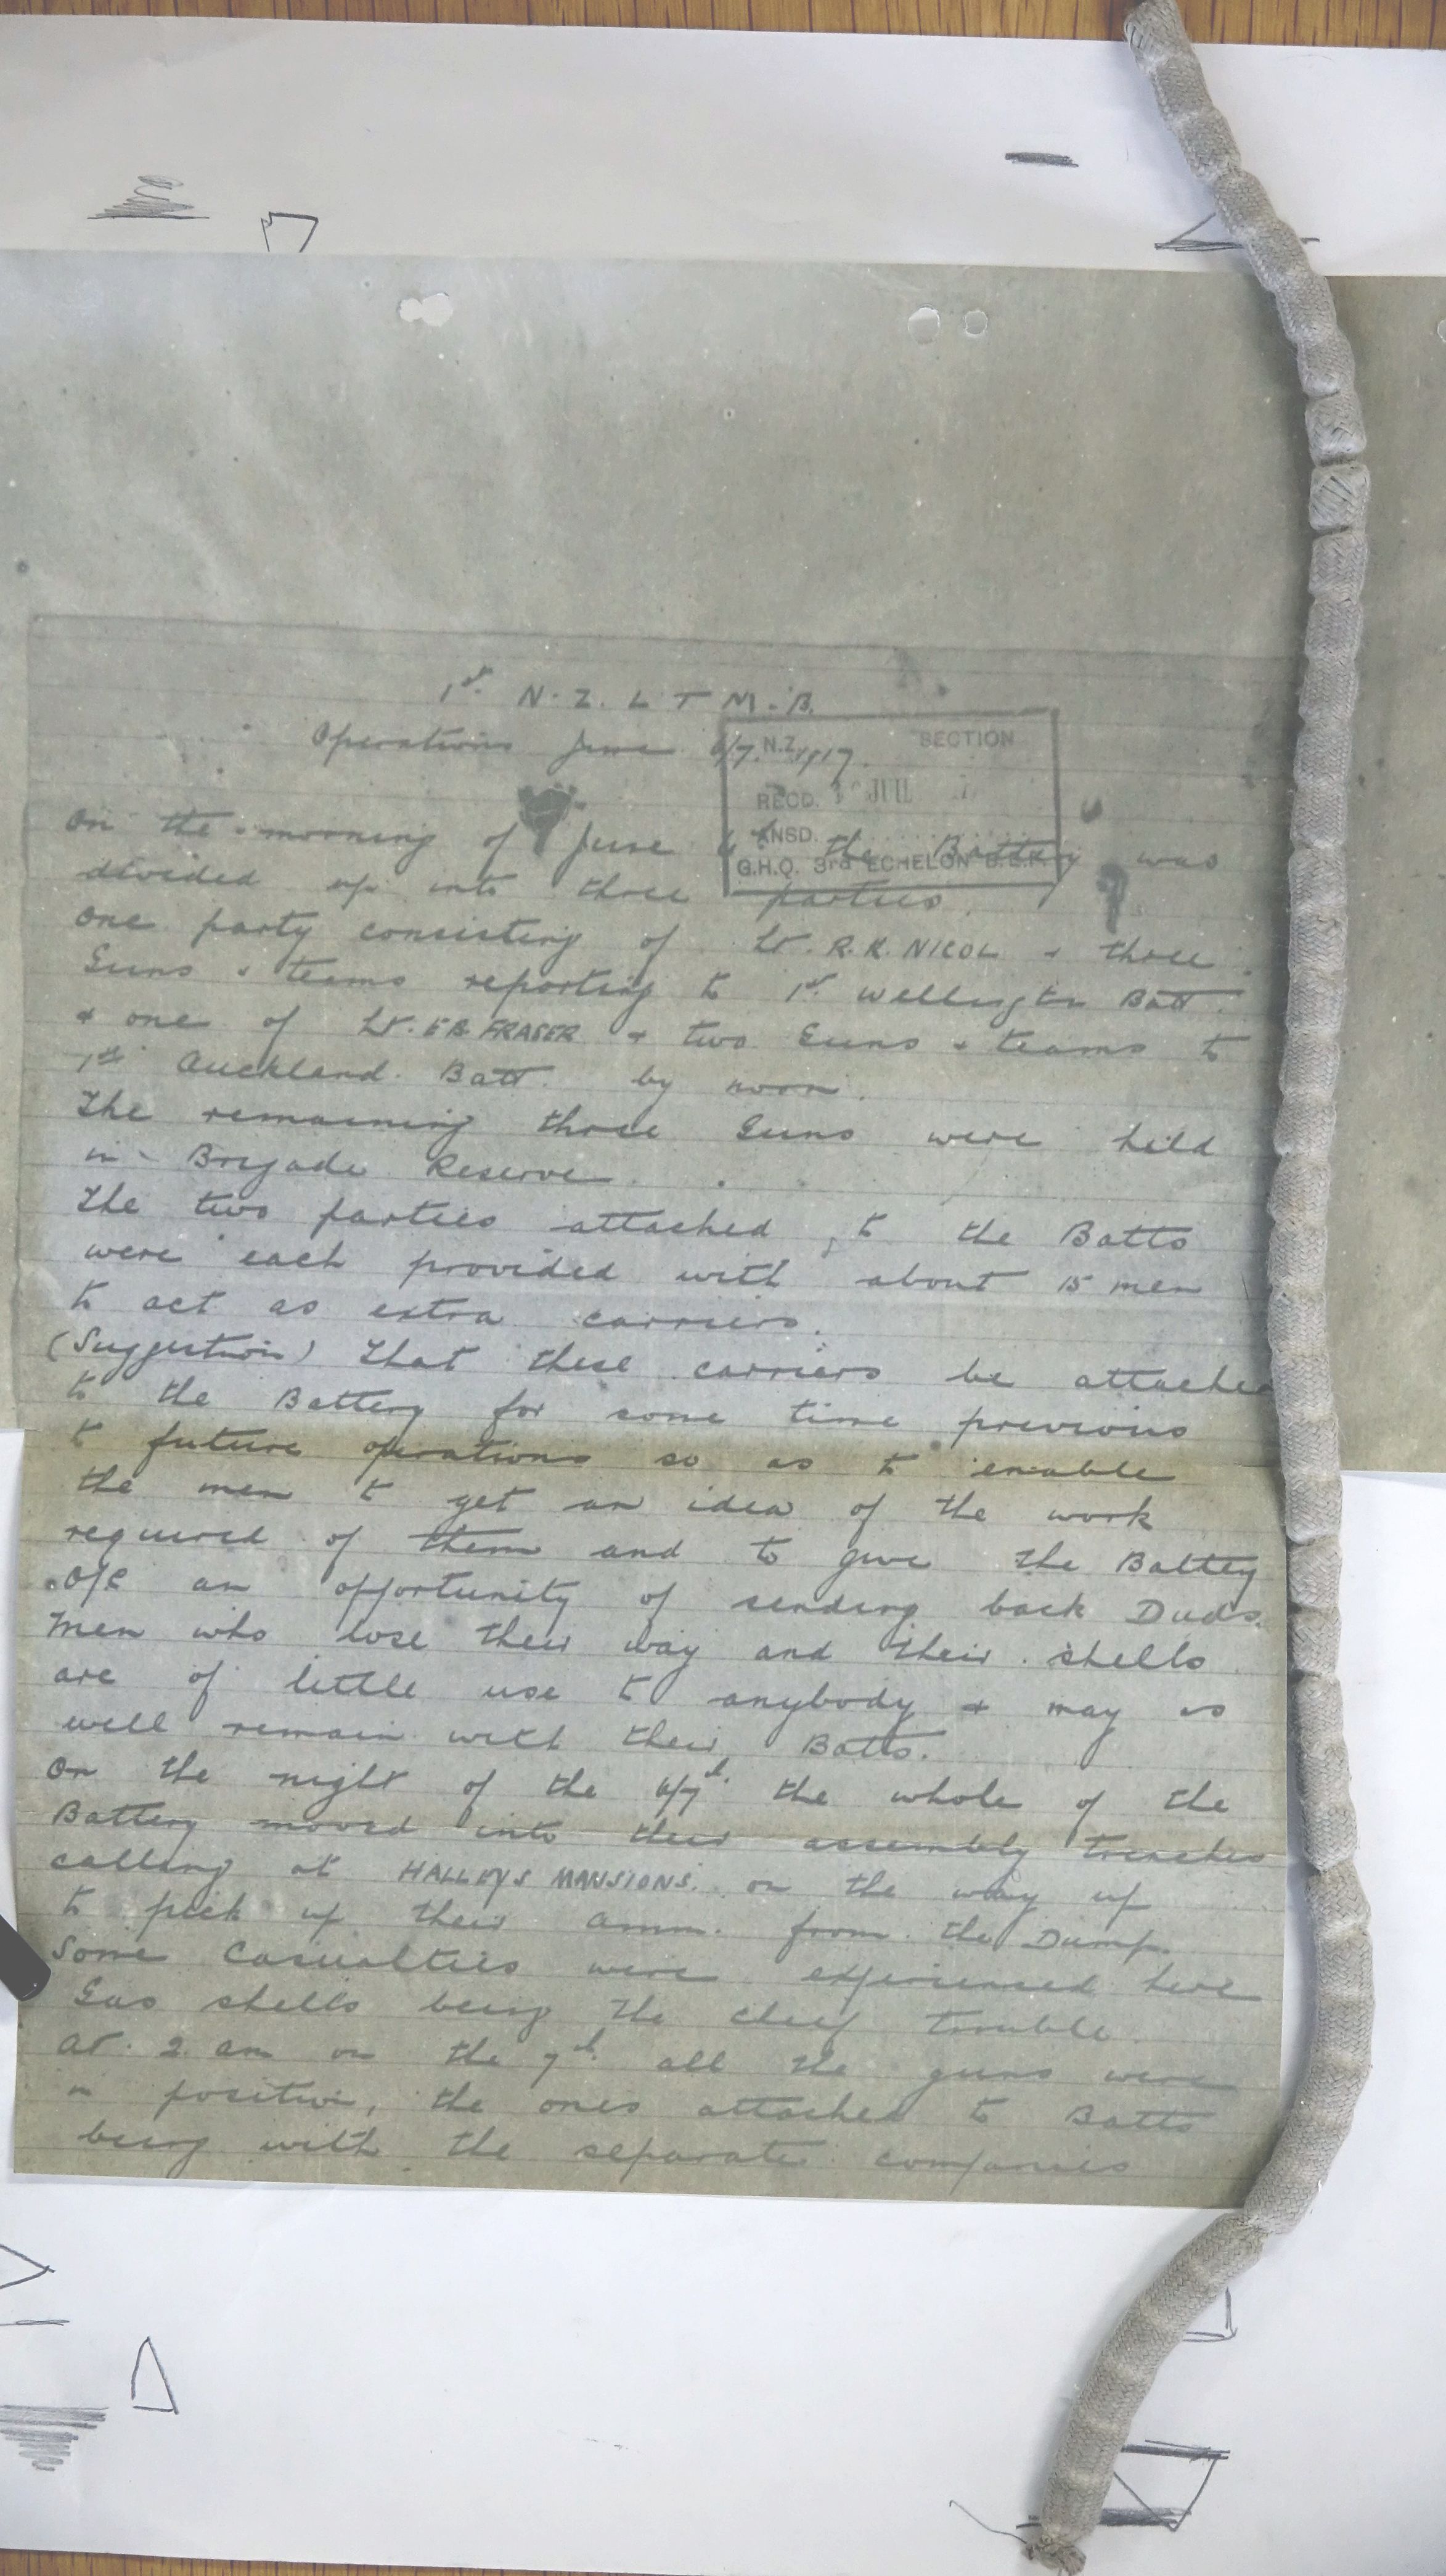 1st. N. Z. L T M. B.
Operations June 6/7. 1917.
N.Z. SECTION
RECD. JUL
ANSD.
G.H.Q. 3rd ECHELON B.E.F.
On the morning of June the Battery was
divided up into three parties.
One party consisting of Lt. R.K. NICOL + three
Guns + teams reporting to 1st Wellington Batt.
+ one of Lt. FRASER + two Guns + teams to
1st Auckland Batt. by noon.
The remaining three Guns were held
in Brigade Reserve.
The two parties attached to the Batts
were each provided with about 15 men
to act as extra carriers.
(Suggestion) That these carriers be attached
to the Battery for some time previous
to future operations so as to enable
the men to get an idea of the work
required of them and to give the Battery
O/C an opportunity of sending back Duds.
Men who lose their way and their shells
are of little use to anybody + may as
well remain with their Batts.
On the night of the 6/7th. the whole of the
Battery moved into their assembly trenches
calling at HALLEYS MANSIONS. on the way up
to pick up their amm. from the Dump.
Some Casualties were experienced here
Gas shells being the chief trouble.
At 2 am on the 7th. all the guns were
in position, the ones attached to Batts
being with the separate companies